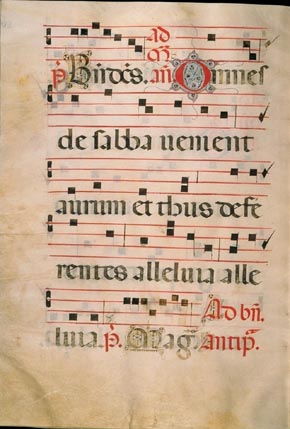 ad
Omnes
de sabba uenient
aurum et thus defe
rentes alleluia alle
Ad bñ.
luia. p̃. Mag̃. Antip̃.